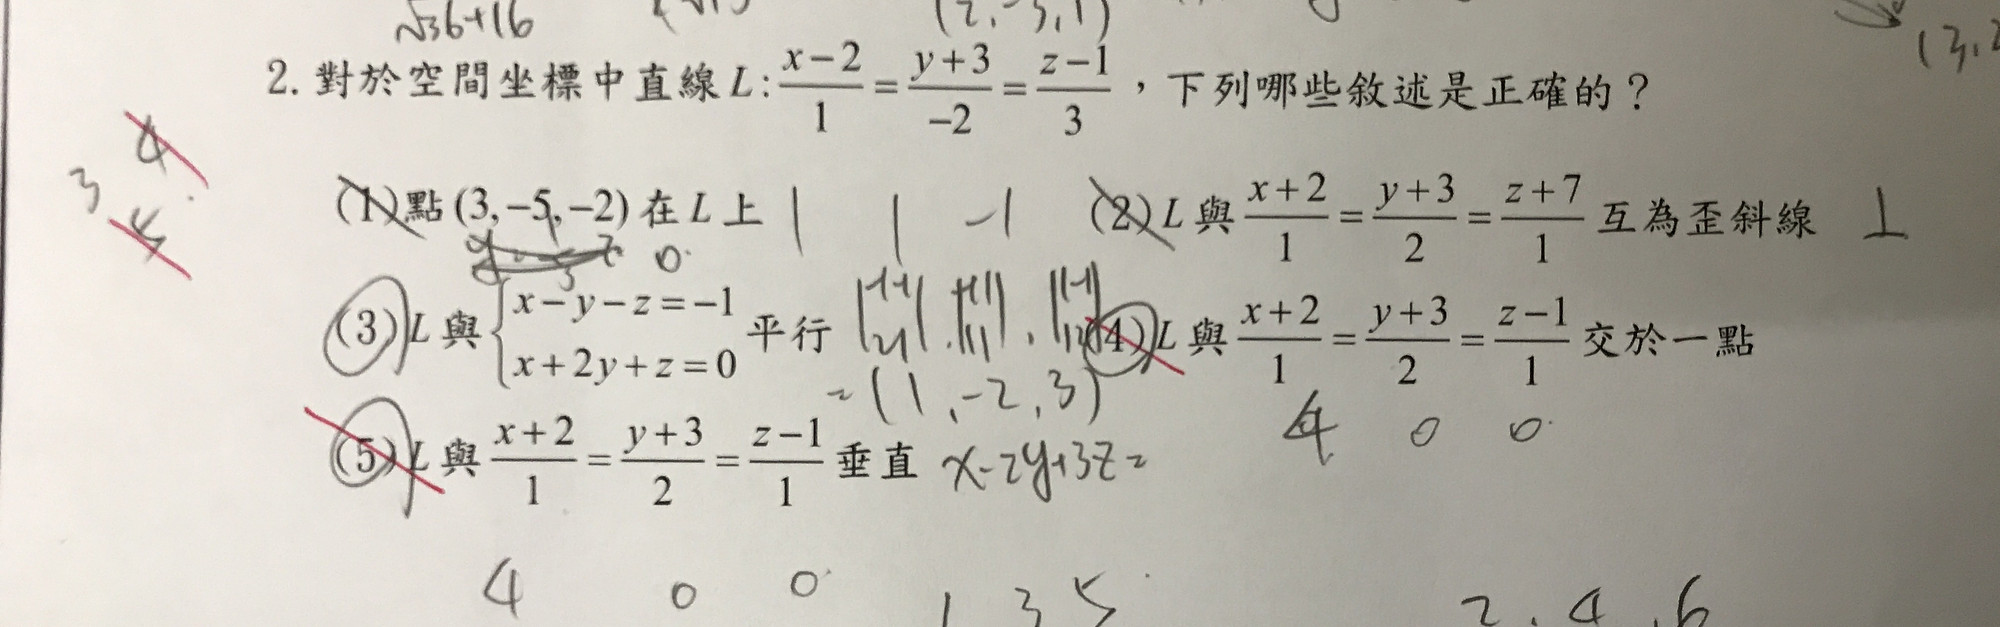 √36+16
(2,-3,1)
(3,2
2. 對於空間坐標中直線 L: (x-2)/1 = (y+3)/-2 = (z-1)/3，下列哪些敘述是正確的？
4
3
5
(1)點(3,-5,-2)在 L 上 | | -1 (2) L 與 (x+2)/1 = (y+3)/2 = (z+7)/1 互為歪斜線 ⊥
0
(3) L 與 { x-y-z=-1 平行 (4) L 與 (x+2)/1 = (y+3)/2 = (z-1)/1 交於一點
x+2y+z=0
=(1,-2,3)
4 0 0
(5) L 與 (x+2)/1 = (y+3)/2 = (z-1)/1 垂直 x-2y+3z=
4 0 0 1 3 5 2, 4, 6